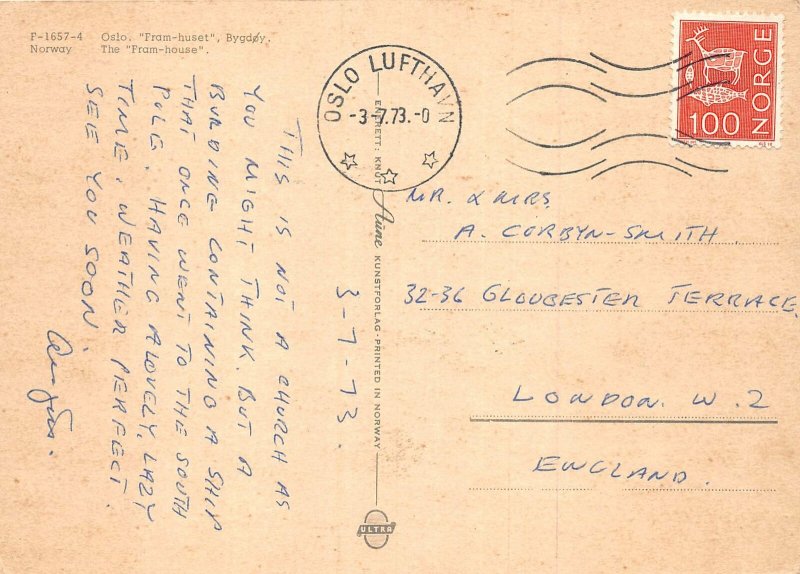 F-1657-4 Oslo. "Fram-huset", Bygdøy.
Norway The "Fram-house".
THIS IS NOT A CHURCH AS
YOU MIGHT THINK. BUT A
BUILDING CONTAINING A SHIP
THAT ONCE WENT TO THE SOUTH
POLE. HAVING A LOVELY, LAZY
TIME. WEATHER PERFECT.
SEE YOU SOON.
3-7-73.
OSLO LUFTHAVN
-3-7.73.-0
NORGE
100
ENERETT: KNUT Aune KUNSTFORLAG - PRINTED IN NORWAY
ULTRA
MR. & MRS
A. CORBYN-SMITH.
32-36 GLOUCESTER TERRACE
LONDON. W. 2
ENGLAND.